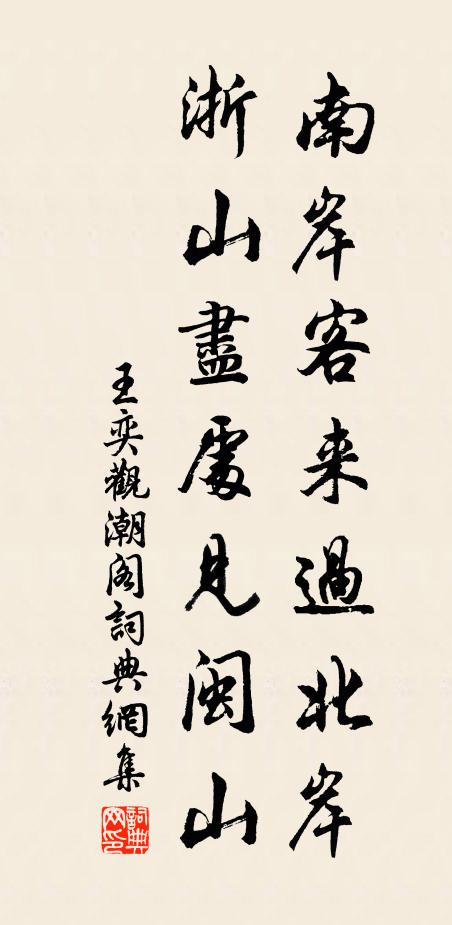 南岸客来過北岸
浙山盡處見閩山
王奕觀潮阁詞典網集
詞典網印